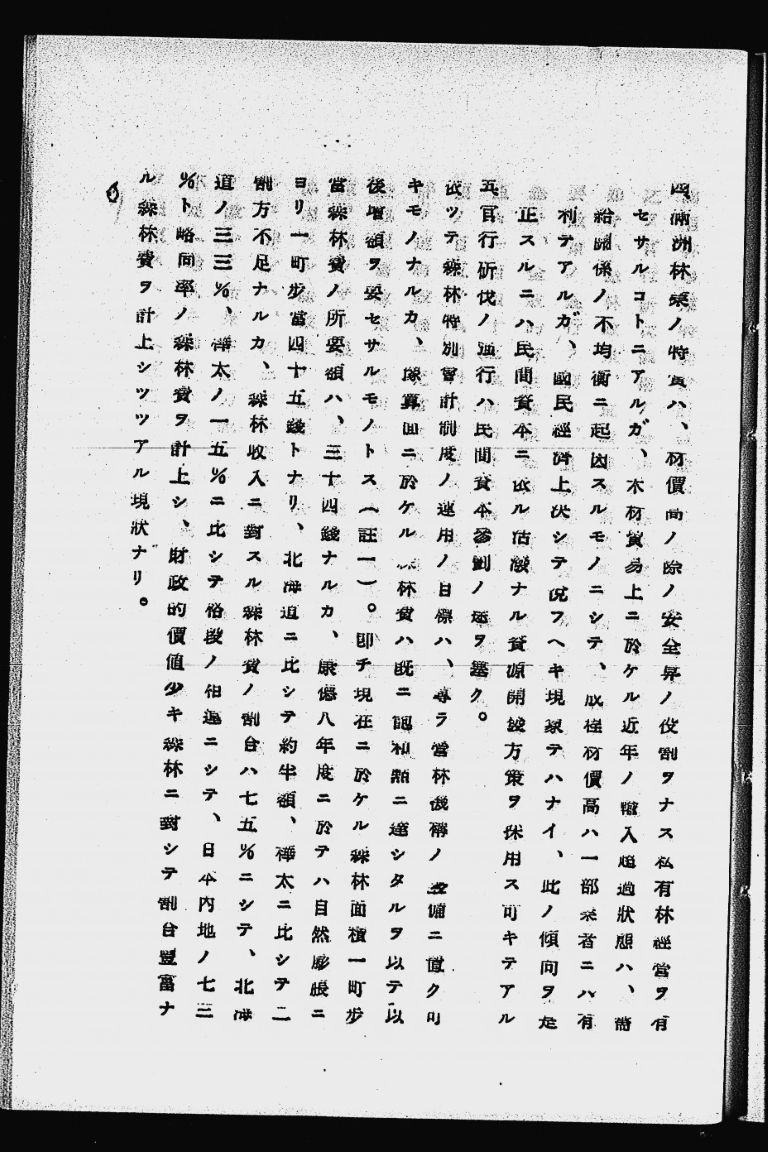 四滿洲林業ノ特質ハ、材價高ノ際ノ安全昇ノ役割ヲナス私有林經營ヲ有
セサルコトニアルガ、木材貿易上ニ於ケル近年ノ輸入超過狀態ハ、需
給關係ノ不均衡ニ起因スルモノニシテ、此種材價高ハ一部業者ニハ有
利テアルガ、國民經濟上決シテ祝フヘキ現象テハナイ、此ノ傾向ヲ是
正スルニハ民間資本ニ依ル活潑ナル資源開發方策ヲ採用ス可キテアル
五官行斫伐ノ强行ハ民間資本參劃ノ途ヲ塞ク。
依ツテ森林特別會計制度ノ運用ノ目標ハ、專ラ營林機構ノ整備ニ置ク可
キモノナルカ、豫算面ニ於ケル森林費ハ既ニ飽和點ニ達シタルヲ以テ以
後增額ヲ要セサルモノトス（註一）。卽チ現在ニ於ケル森林面積一町步
當森林費ノ所要額ハ、三十四錢ナルカ、康德八年度ニ於テハ自然膨脹ニ
ヨリ一町步當四十五錢トナリ、北海道ニ比シテ約半額、樺太ニ比シテ二
割方不足ナルカ、森林收入ニ對スル森林費ノ割合ハ七五％ニシテ、北海
道ノ三三％、樺太ノ一五％ニ比シテ格段ノ相違ニシテ、日本内地ノ七三
％ト略同率ノ森林費ヲ計上シ、財政的價値少キ森林ニ對シテ割合豐富ナ
ル森林費ヲ計上シツツアル現狀ナリ。